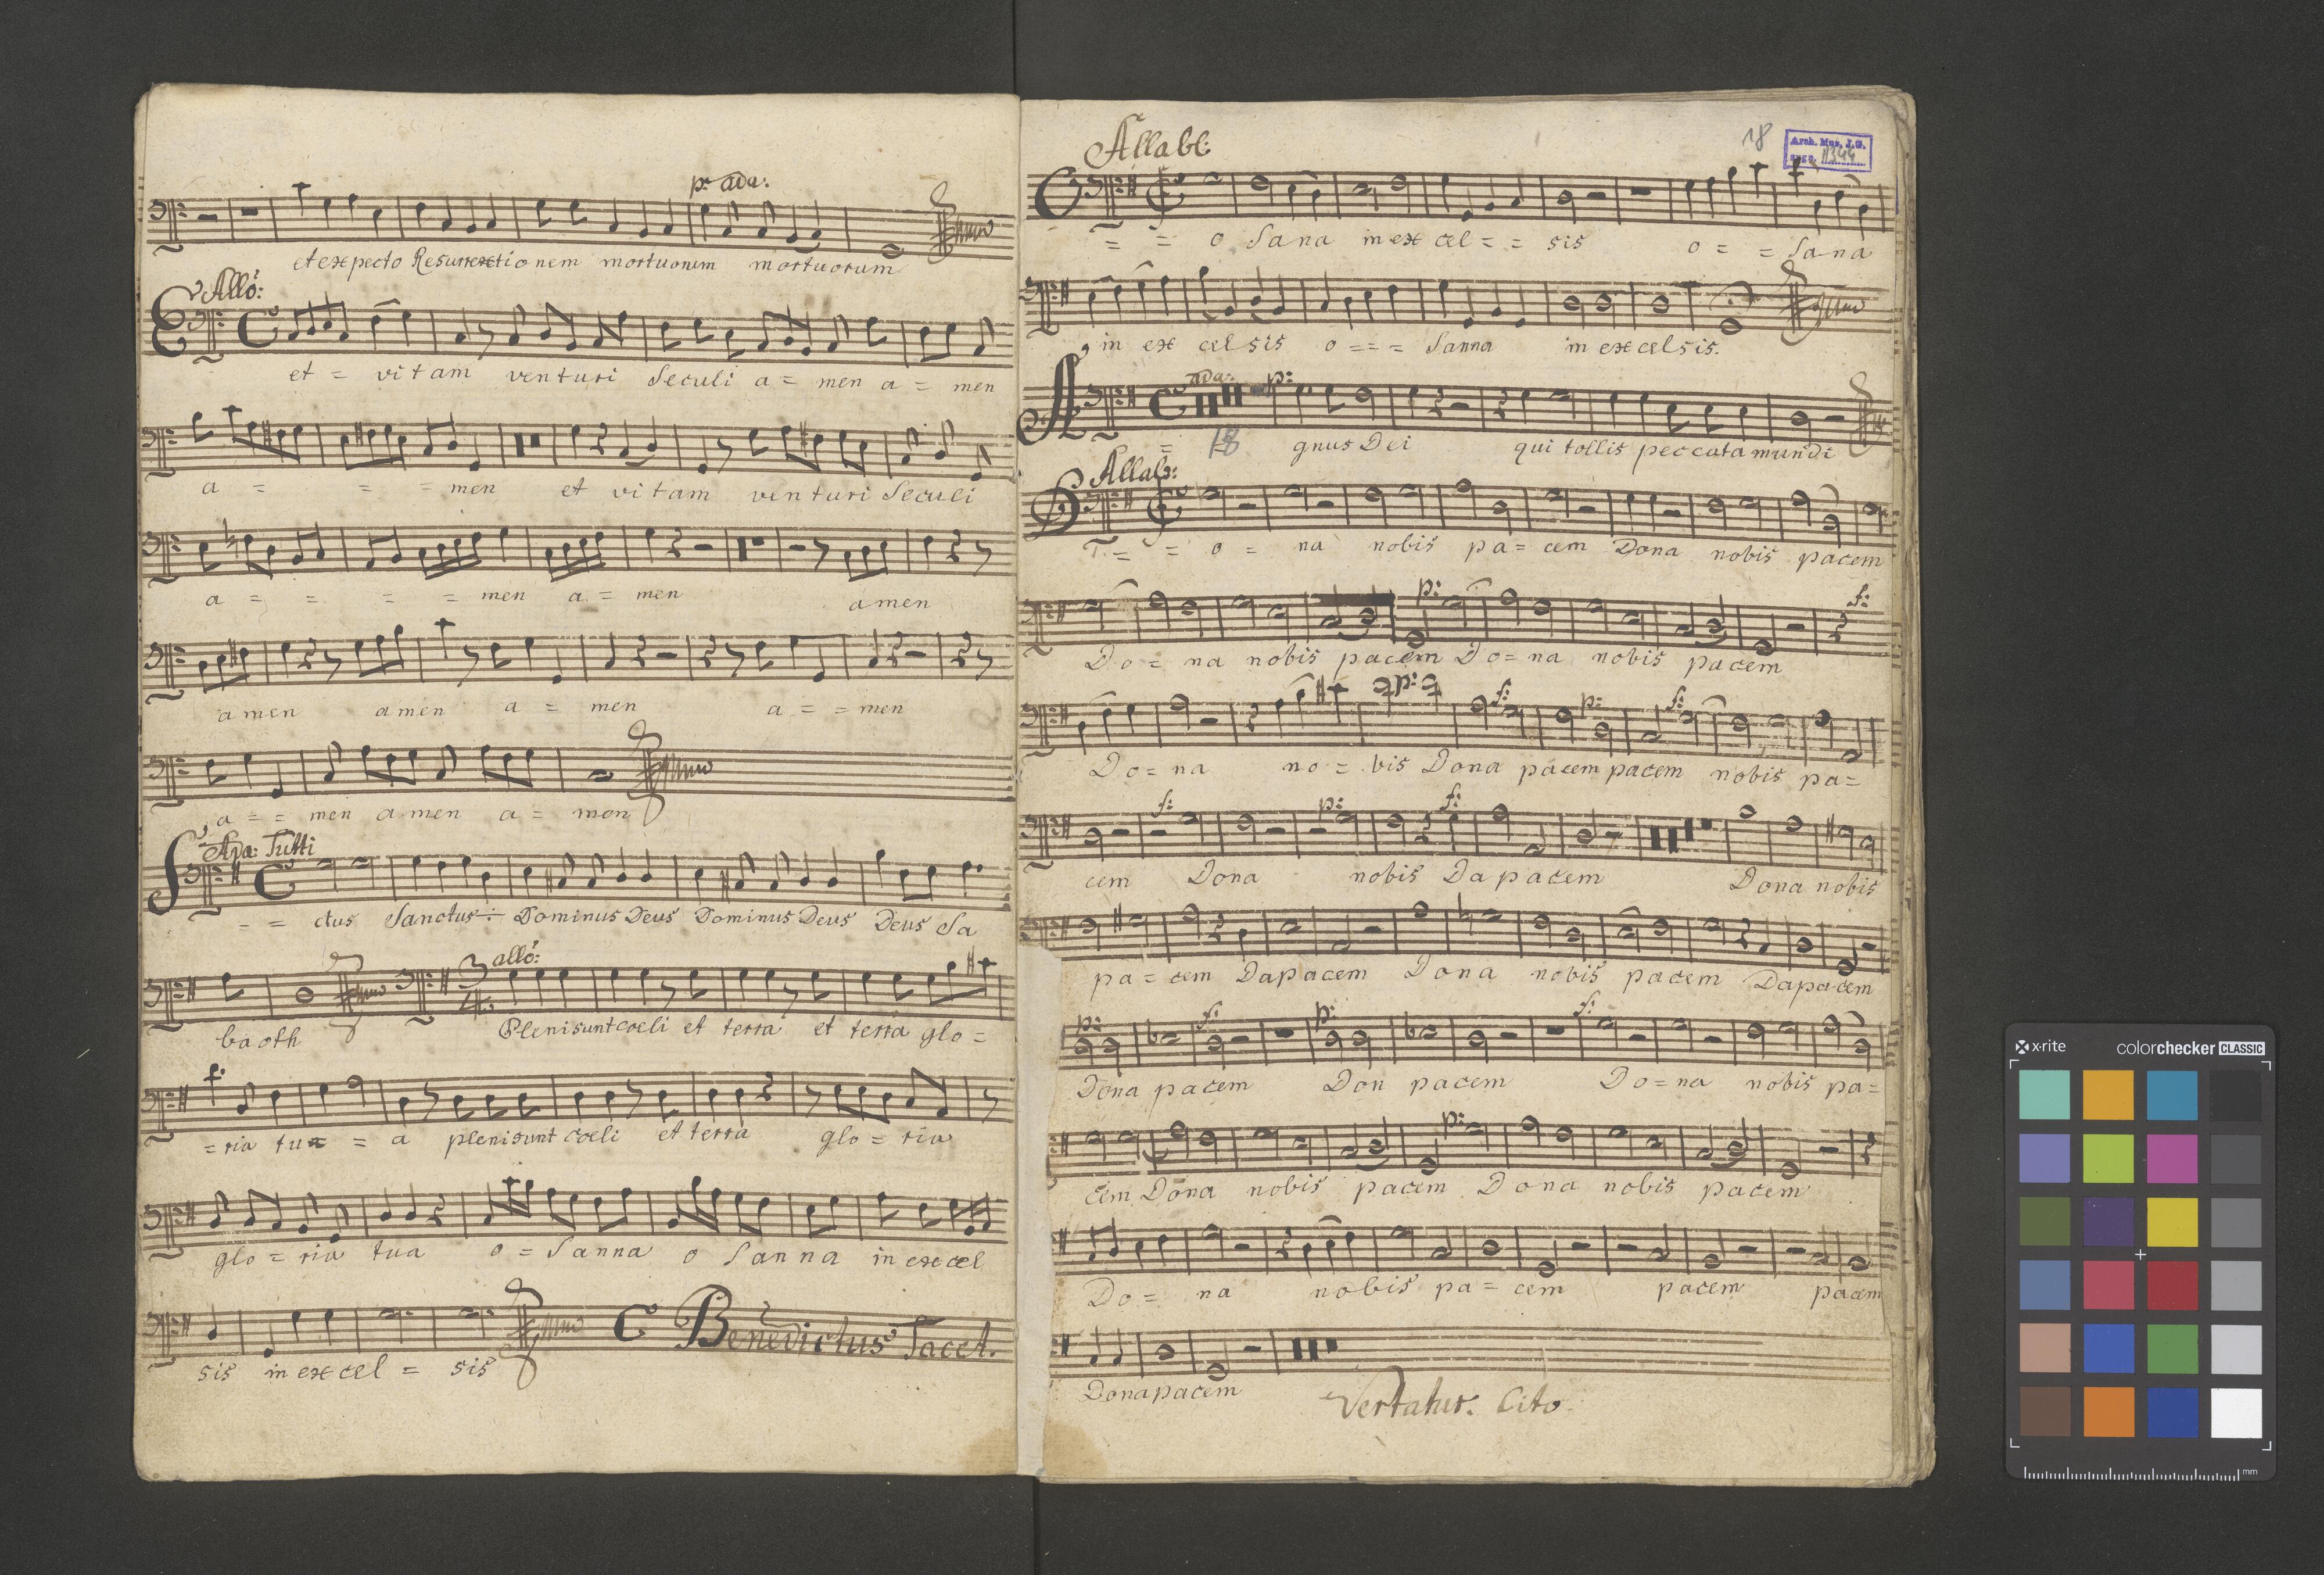 p: ada:
et expecto Resurrextionem mortuorum mortuorum
Allo:
et = vitam venturi Seculi a = men a = men
a = = = men et vitam venturi Seculi
a = = = = men a = men amen
amen amen a = men a = = men
a = = men amen a = men
Ada: Tutti
S = = ctus Sanctus ÷ Dominus Deus Dominus Deus Deus Sa
allo:
baoth Pleni sunt coeli et terra et terra glo =
= ria tu = a pleni sunt coeli et terra glo = ria
glo = ria tua o = Sanna o Sanna in excel
sis in excel = sis
Benedictus Tacet.
18
Arch. Mus. J.G.
1344
Allabr:
O = = o Sana in excel = = sis o = = Sana
in excelsis o = = = Sanna in excelsis.
ada: p:
A = 18 gnus Dei qui tollis peccata mundi
Allab:
D = = o = na nobis pa = cem Dona nobis pacem
p: f:
Do = na nobis pacem Do = na nobis pacem
p: f: p: f:
Do = na no = bis Dona pacem pacem nobis pa =
f: p: f:
cem Dona nobis Da pacem Dona nobis
pa = cem Da pacem Dona nobis pacem Da pacem
p: f: p: f:
Dona pacem Don pacem Do = na nobis pa =
p:
cem Dona nobis pacem Dona nobis pacem
Do = na nobis pa = cem pacem pacem
Dona pacem
Vertatur. Cito.
x-rite
colorchecker CLASSIC
mm